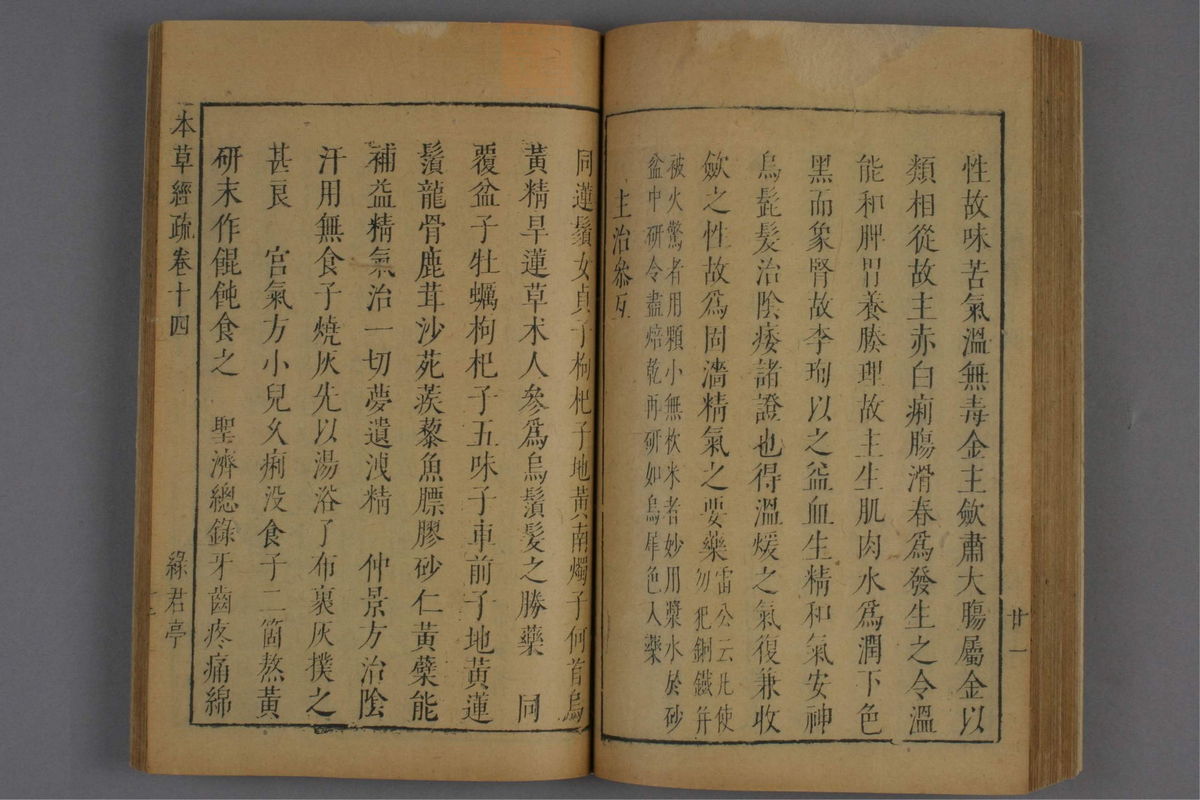 性故味苦氣溫無毒金主斂肅大腸屬金以
類相從故主赤白痢腸滑春爲發生之令溫
能和脾胃養腠理故主生肌肉水爲潤下色
黑而象腎故李珣以之益血生精和氣安神
烏髭髮治陰痿諸證也得溫煖之氣復兼收
斂之性故爲固濇精氣之要藥雷公云凡使
勿犯銅鐵并
被火驚者用顆小無枚米者妙用漿水於砂
盆中研令盡焙乾再研如烏犀色入藥
主治參互
同蓮鬚女貞子枸杞子地黃南燭子何首烏
黃精旱蓮草朮人參爲烏鬚髮之勝藥 同
覆盆子牡蠣枸杞子五味子車前子地黃蓮
鬚龍骨鹿茸沙苑蒺藜魚膘膠砂仁黃蘗能
補益精氣治一切夢遺洩精 仲景方治陰
汗用無食子燒灰先以湯浴了布裹灰撲之
甚良 宮氣方小兒久痢没食子二箇熬黃
研末作餛飩食之 聖濟總錄牙齒疼痛綿
本草經疏 卷十四 綠君亭
廿一